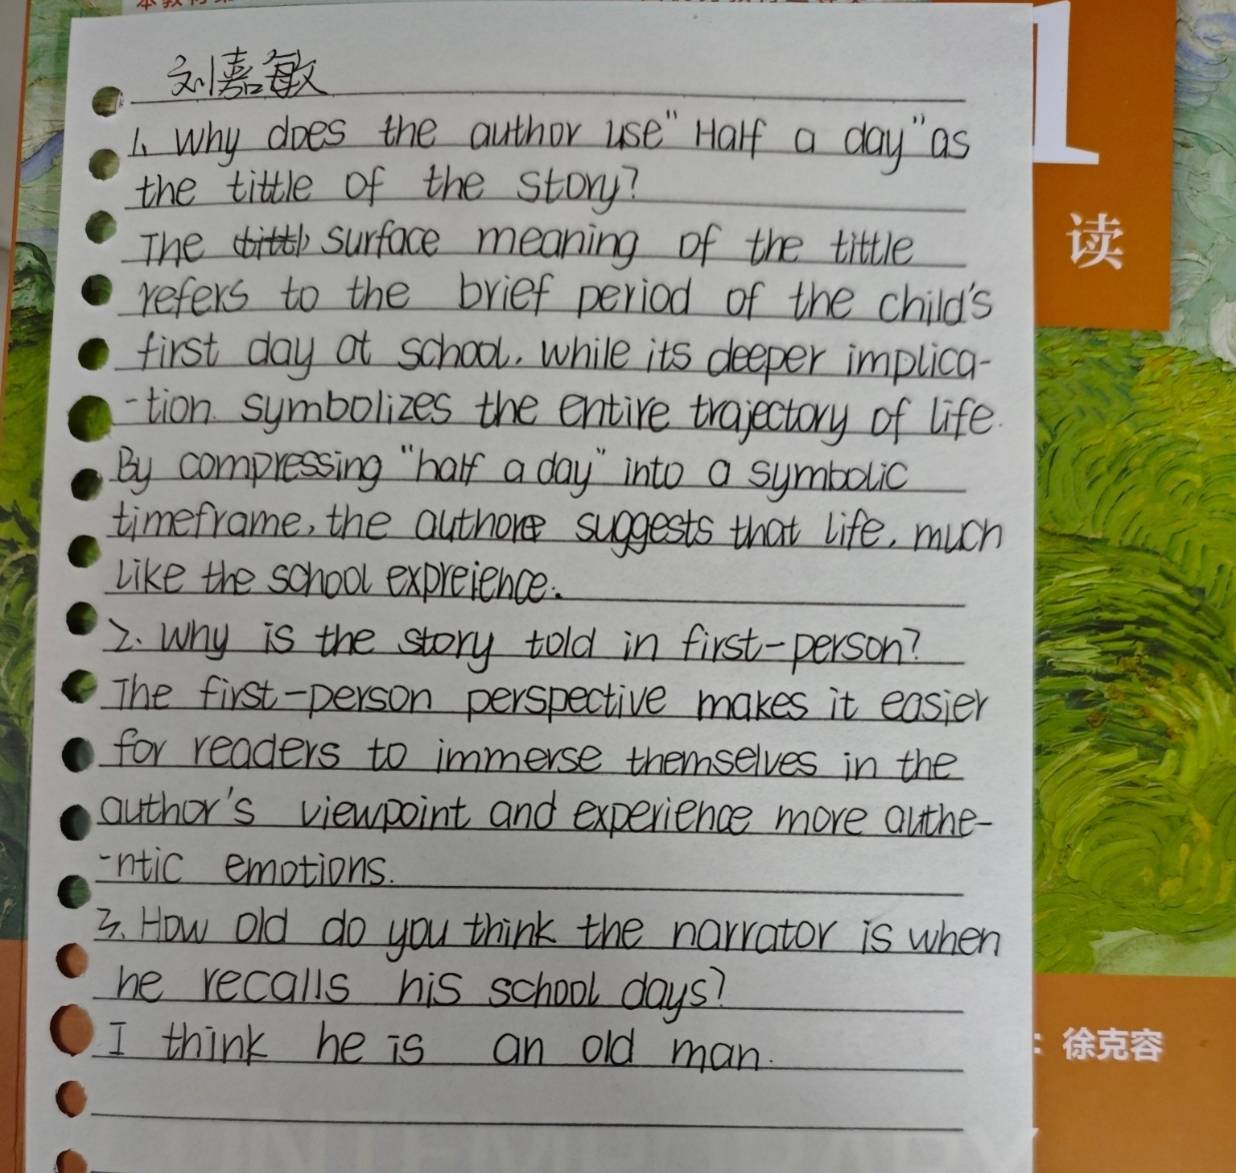 刘嘉敏
1. Why does the author use "Half a day" as
the tittle of the story?
The surface meaning of the tittle
refers to the brief period of the child's
first day at school, while its deeper implica-
-tion symbolizes the entire trajectory of life.
By compressing "half a day" into a symbolic
timeframe, the author suggests that life, much
like the school expreience.
2. Why is the story told in first-person?
The first-person perspective makes it easier
for readers to immerse themselves in the
author's viewpoint and experience more authe-
-ntic emotions.
3. How old do you think the narrator is when
he recalls his school days?
I think he is an old man.
1
读
徐克容